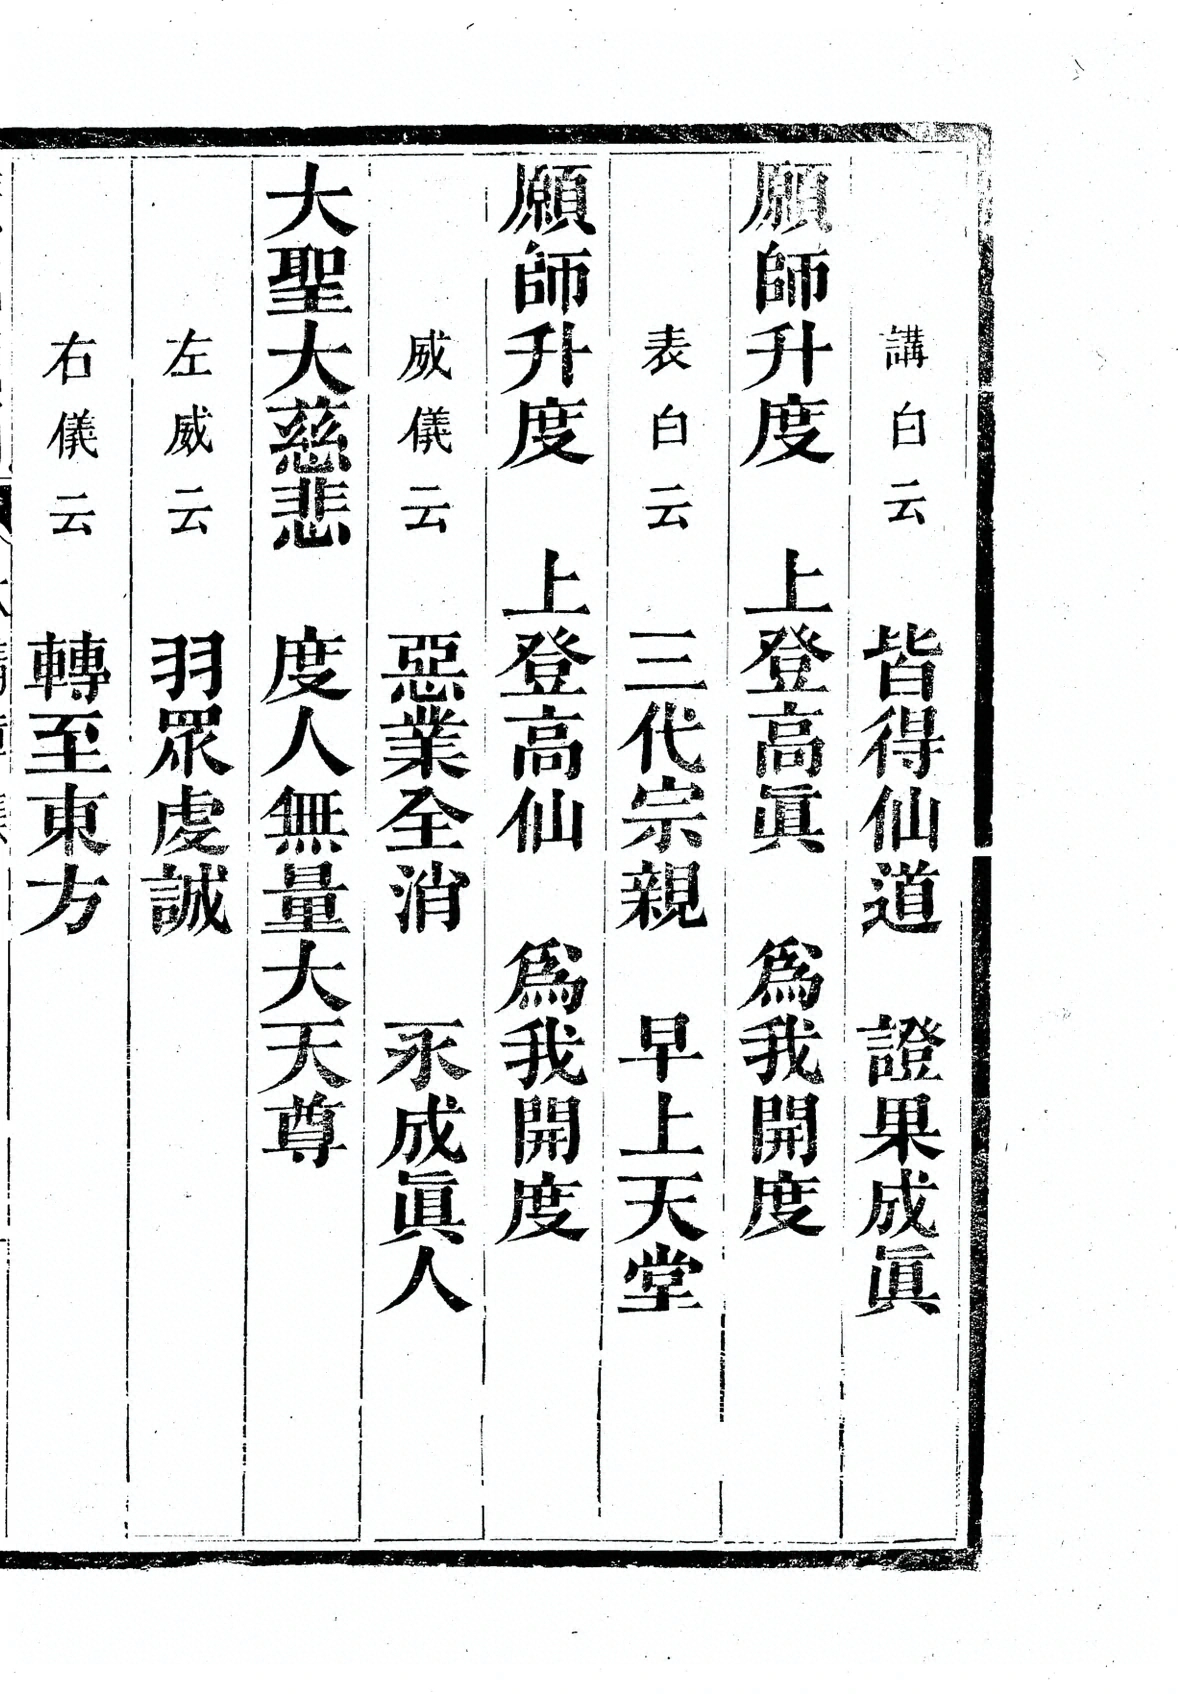 講白云　皆得仙道　證果成眞
願師升度　上登高眞　爲我開度
表白云　三代宗親　早上天堂
願師升度　上登高仙　爲我開度
威儀云　惡業全消　永成眞人
大聖大慈悲　度人無量大天尊
左威云　羽眾虔誠
右儀云　轉至東方